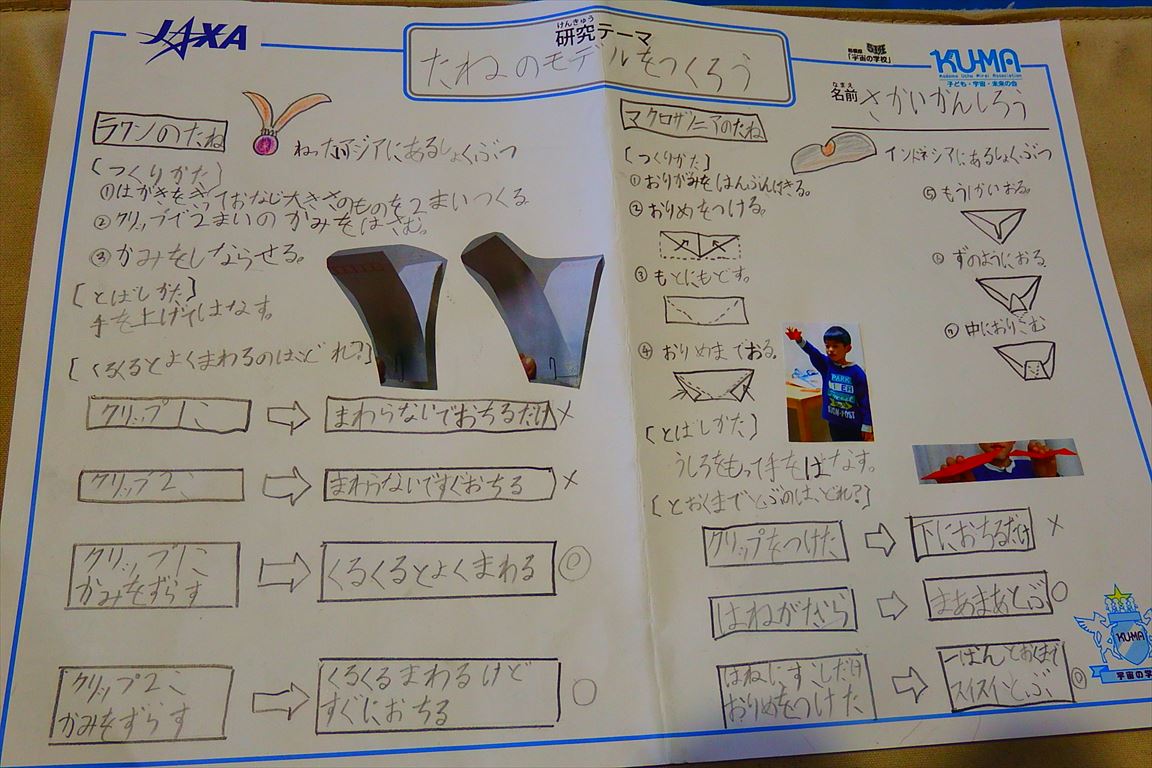 JAXA
けんきゅう
研究テーマ
たねのモデルをつくろう
「宇宙の学校」
KU-MA
子ども・宇宙・未来の会
なまえ
名前 さかいかんしろう
ラワンのたね
ねったいアジアにあるしょくぶつ
[つくりかた]
①はがきをきっておなじ大きさのものを2まいつくる
②クリップで2まいのかみをはさむ。
③かみをしならせる。
[とばしかた]
手を上げてはなす。
[くるくるとよくまわるのは、どれ?]
クリップ1こ
まわらないでおちるだけ ×
クリップ2こ
まわらないですぐおちる ×
クリップ1こ
かみをずらす
くるくるとよくまわる ◎
クリップ2こ
かみをずらす
くるくるまわるけど
すぐにおちる ○
マクロザノニアのたね
インドネシアにあるしょくぶつ
[つくりかた]
①おりがみをはんぶんにきる。
②おりめをつける。
③もとにもどす。
④おりめまでおる。
⑤もう1かいおる。
⑥ずのようにおる
⑦中におりこむ
PARK
[とばしかた]
うしろをもって手をはなす。
[とおくまでとぶのは、どれ?]
クリップをつけた
下におちるだけ ×
はねがたいら
まあまあとぶ ○
はねにすこしだけ
おりめをつけた
一ばんとおくまで
スイスイとぶ ◎
KU-MA
宇宙の学